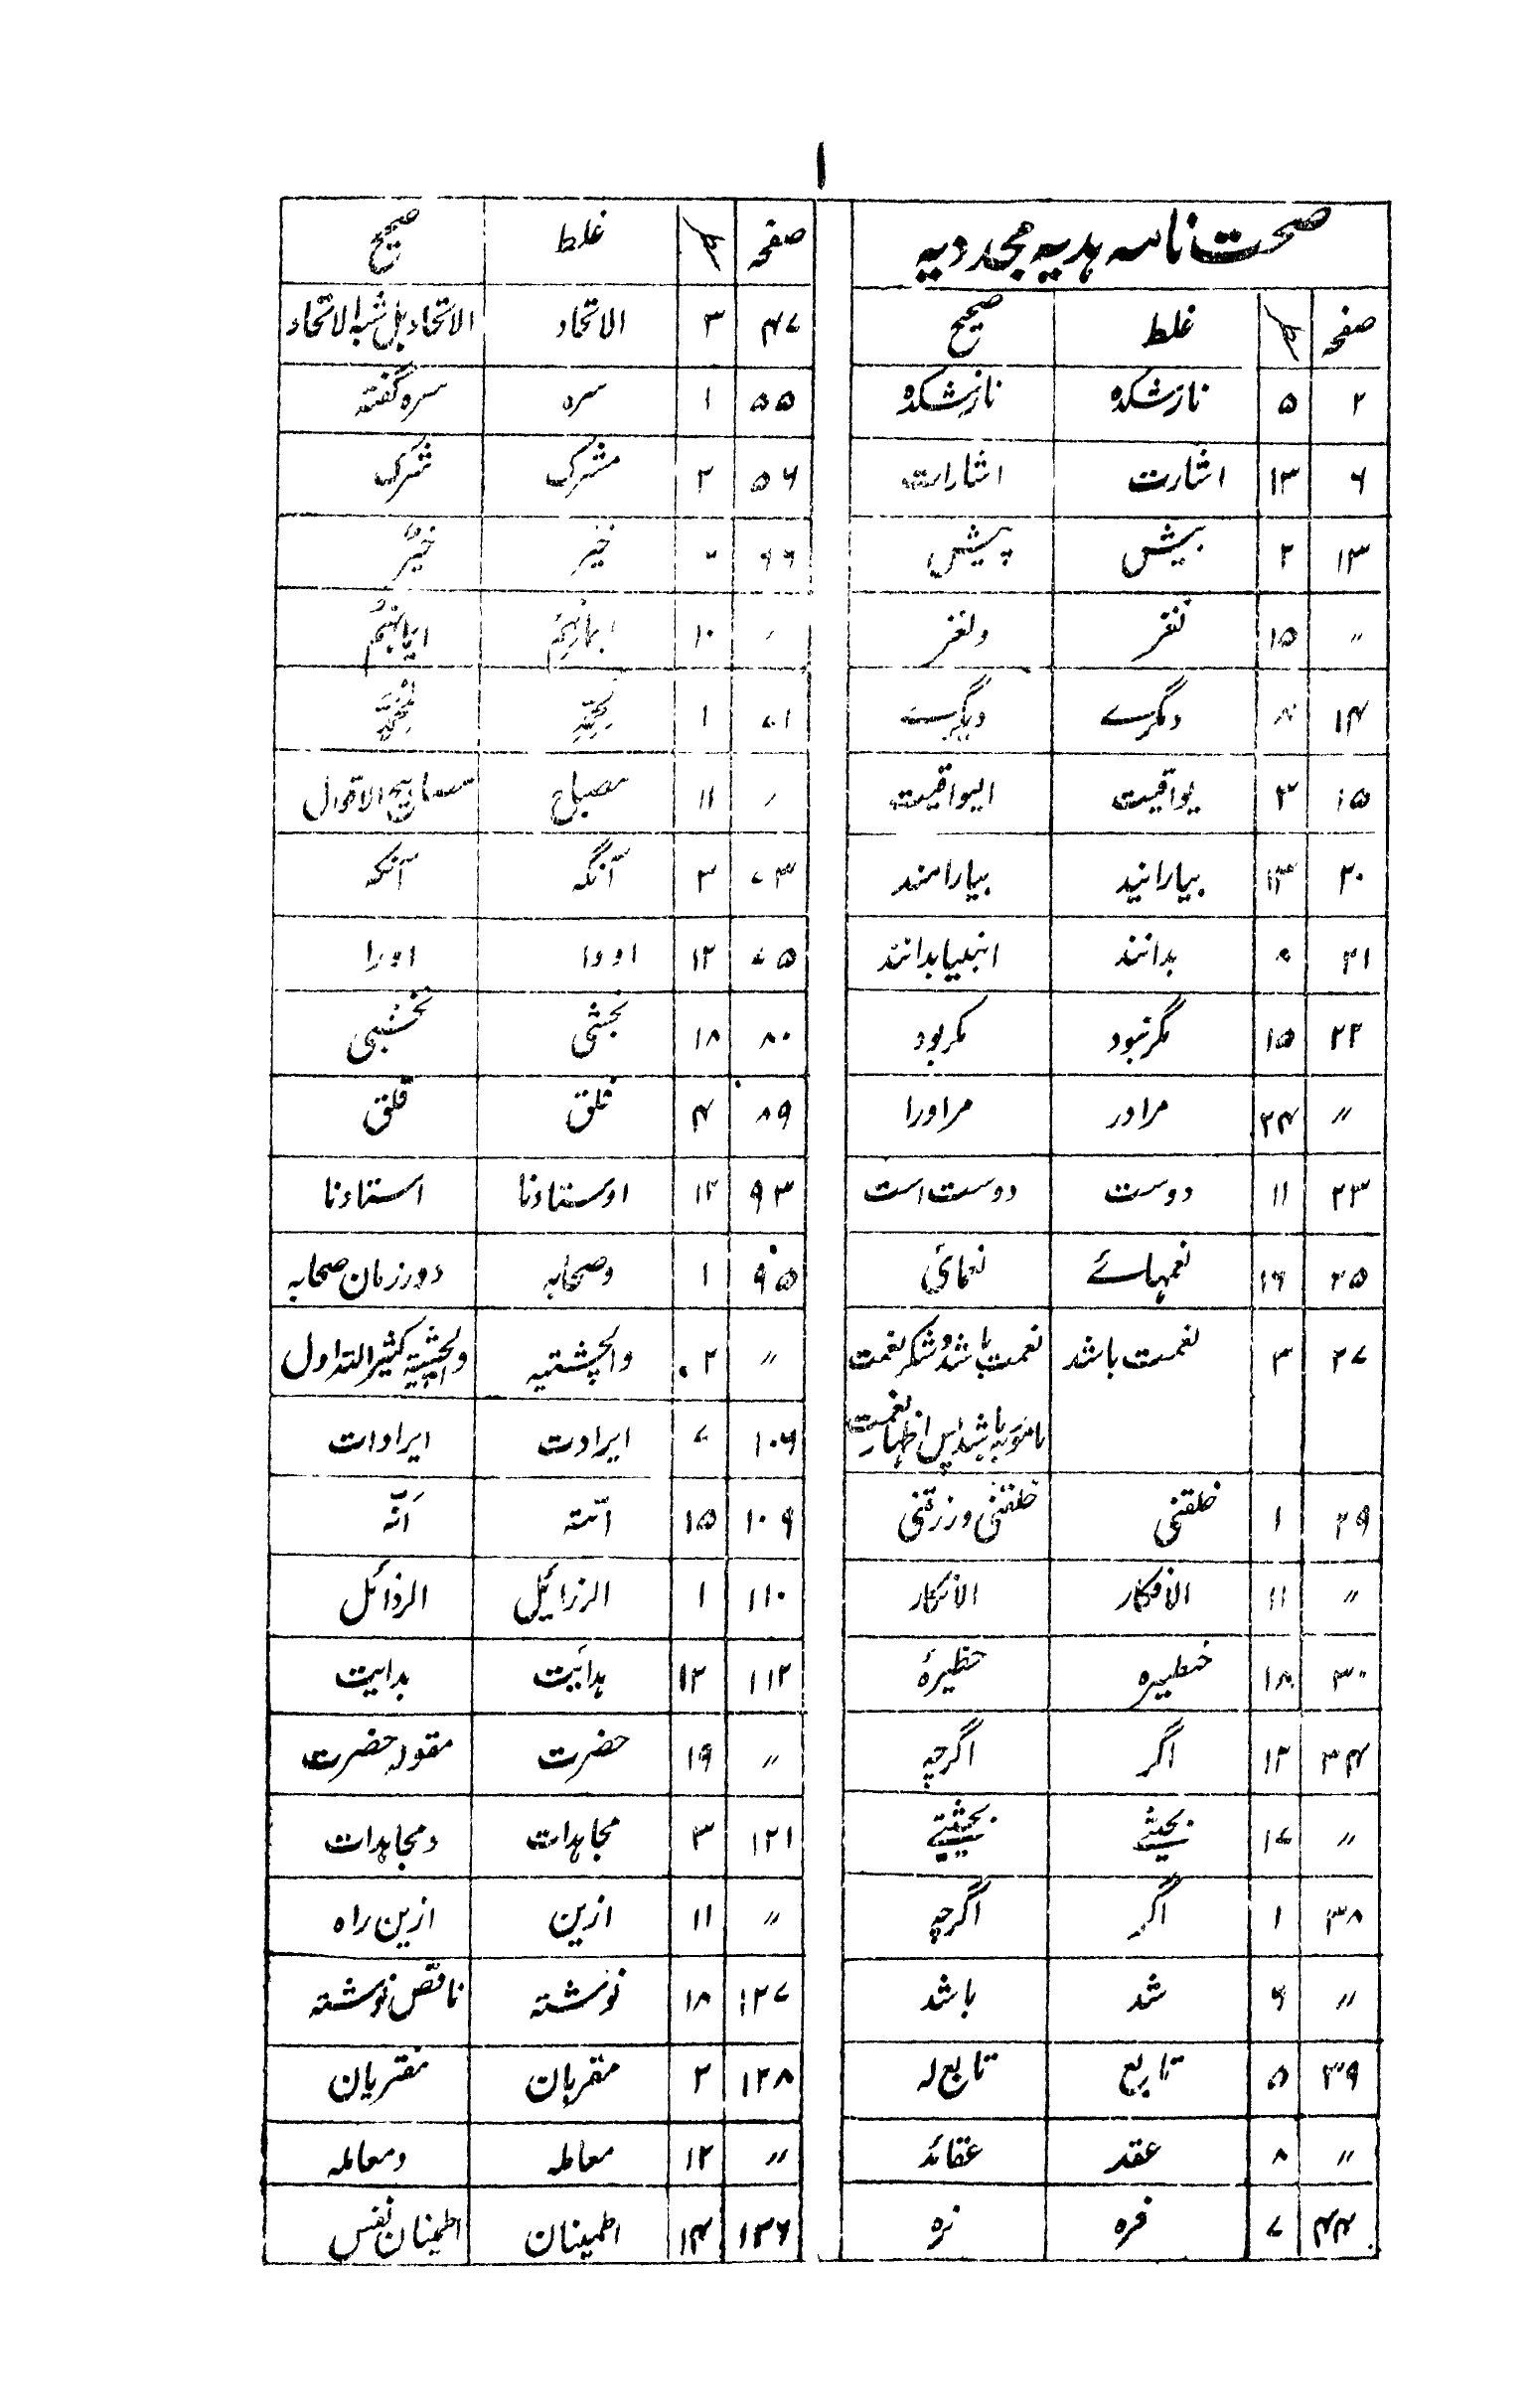 ۱
صحت نامہ ہدیہ مجددیہ
صفحہ سطر غلط صحیح
۲ ۵ نازشکدہ نازشکدہ
۶ ۱۳ اشارت اشارات
۱۳ ۲ بیش پیش
〃 ۱۵ نغز ولغز
۱۴ ۸ دگرے دیگرے
۱۵ ۳ یواقیت الیواقیت
۲۰ ۱۳ بیارانید بیارامند
۲۱ ۸ بدانند انبیا بدانند
۲۲ ۱۵ مگر نبود مگر بود
〃 ۲۴ مرادر مراورا
۲۳ ۱۱ دوست دوست است
۲۵ ۱۶ نعمہائے نعمائی
۲۷ ۳ نعمت باشد نعمت باشد و شکر نعمت
مامور بہ باشد پس اظہار نعمت
۲۹ ۱ خلقنی خلقنی ورزقنی
〃 ۱۱ الافکار الانکار
۳۰ ۱۸ خطیرہ حظیرۂ
۳۴ ۱۲ اگر اگرچہ
〃 ۱۷ بحیثے بحیثیتے
۳۸ ۱ اگر اگرچہ
〃 ۶ شد باشد
۳۹ ۵ تابع تابع لہ
〃 ۸ عقد عقائد
۴۴ ۷ فرہ نرہ
صفحہ سطر غلط صحیح
۴۷ ۳ الاتحاد الاتحاد بل شبہ الاتحاد
۵۵ ۱ سرہ سرہ گفتہ
۵۶ ۲ مشرک شرک
۶۶ خیر خیرٌ
〃 ۱۰ ایمانہم
۷۱ ۱
〃 ۱۱ مصباح مصابیح الاقوال
۷۳ ۳ آنگہ آنکہ
۷۵ ۱۲ اووا اورا
۸۰ ۱۸ بخشی نخشبی
۸۹ ۴ فلق قلق
۹۳ ۱۲ اوستادنا استادنا
۹۵ ۱ وصحابہ ودر زمان صحابہ
〃 ۲ والچشتیہ والچشتیۃ کثیر التداول
۱۰۶ ۷ ایرادت ایرادات
۱۰۹ ۱۵ انتہ اَنَّہ
۱۱۰ ۱ الزرائیل الرذائل
۱۱۲ ۱۲ ہدایت بدایت
〃 ۱۹ حضرت مقولہ حضرت
۱۲۱ ۳ مجاہدات ومجاہدات
〃 ۱۱ ازین ازین راہ
۱۲۷ ۱۸ نوشتہ ناقص نوشتہ
۱۲۸ ۲ مقربان مفتریان
〃 ۱۲ معاملہ ومعاملہ
۱۳۶ ۱۴ اطمینان اطمینان نفس